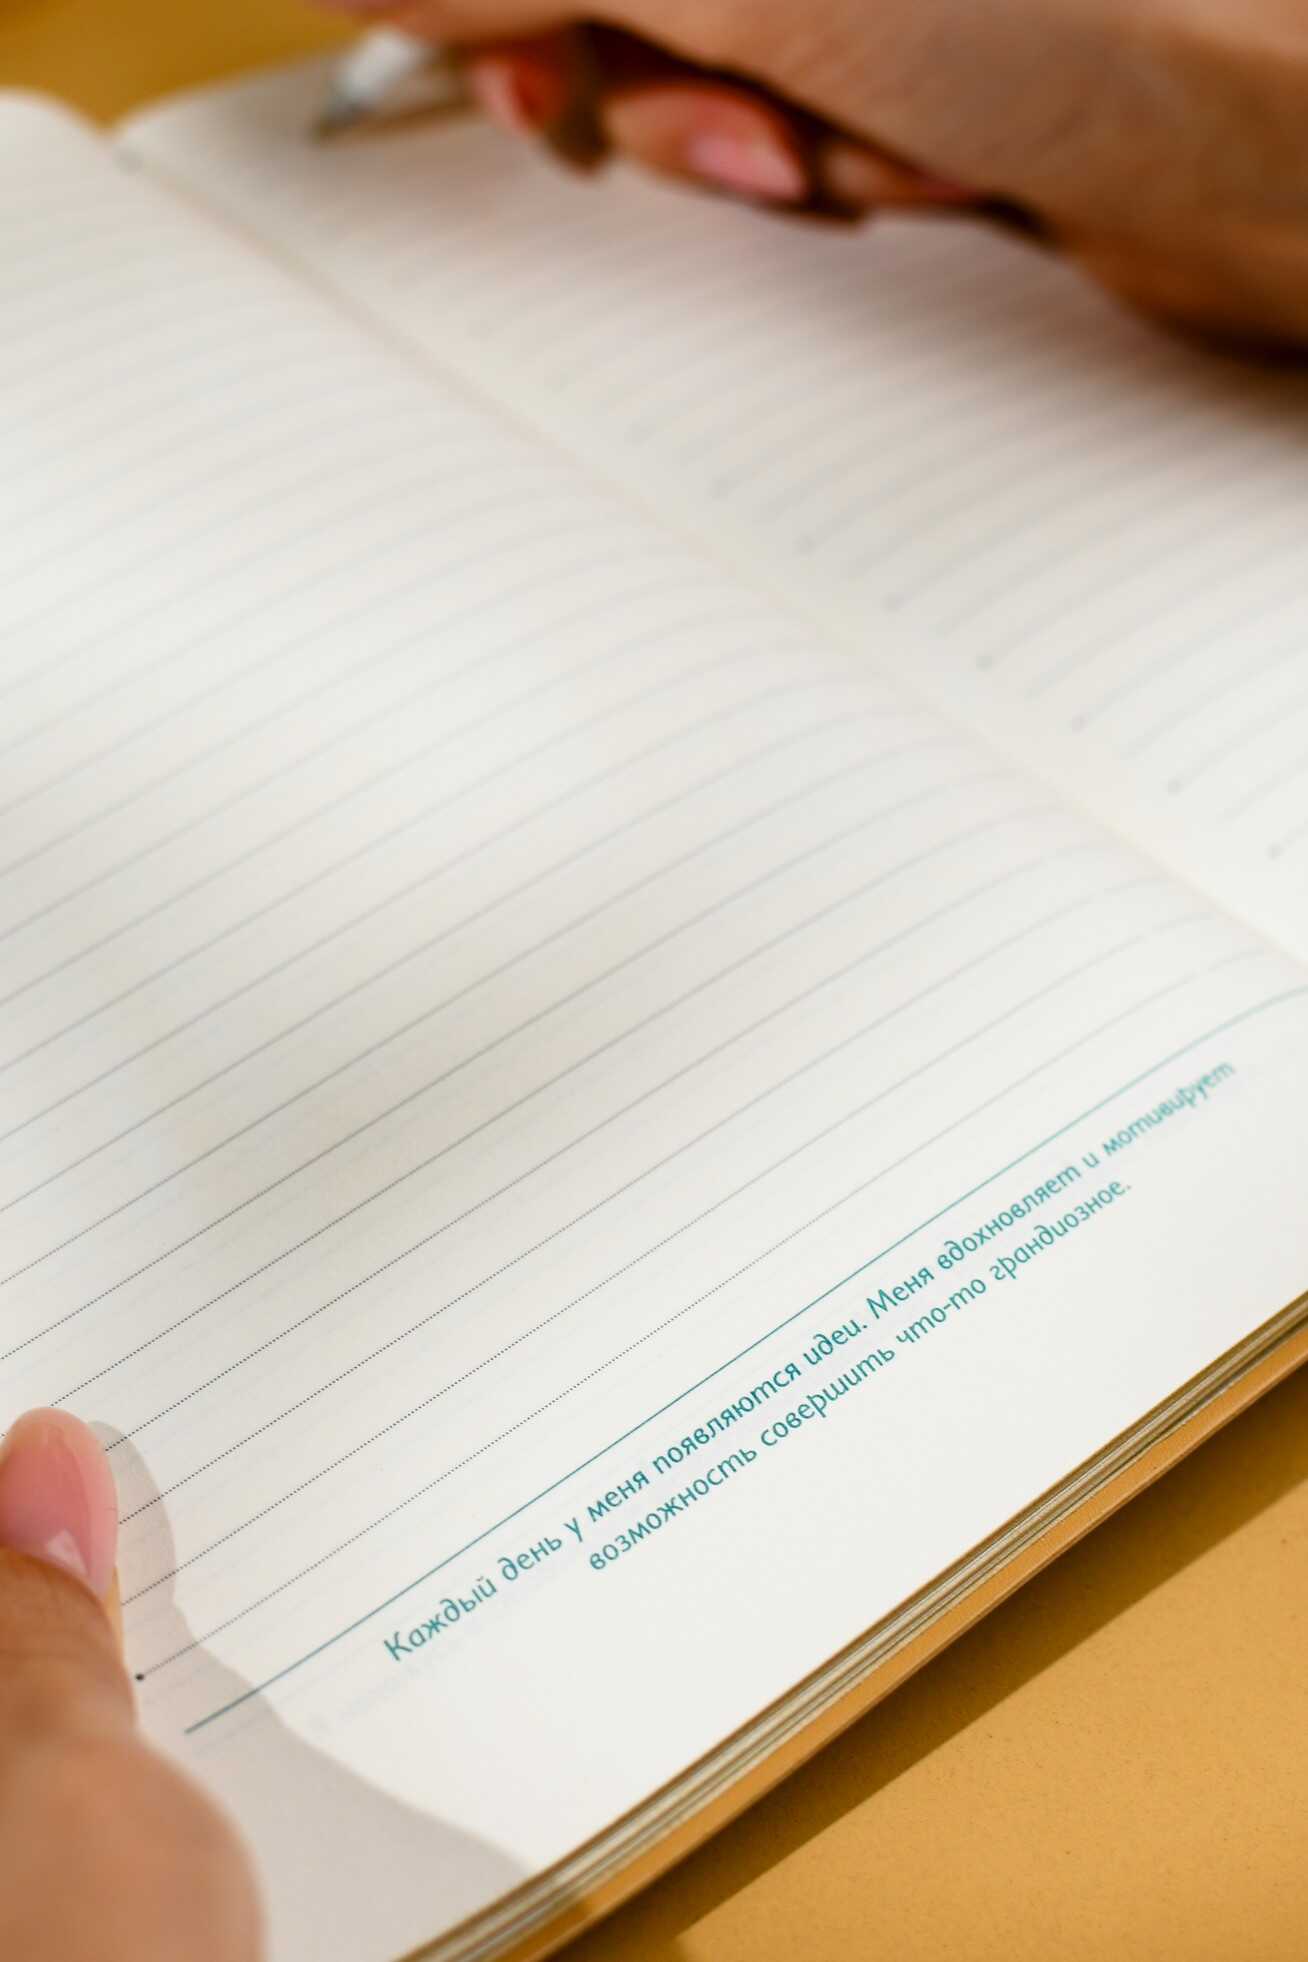 Каждый день у меня появляются идеи. Меня вдохновляет и мотивирует
возможность совершить что-то грандиозное.